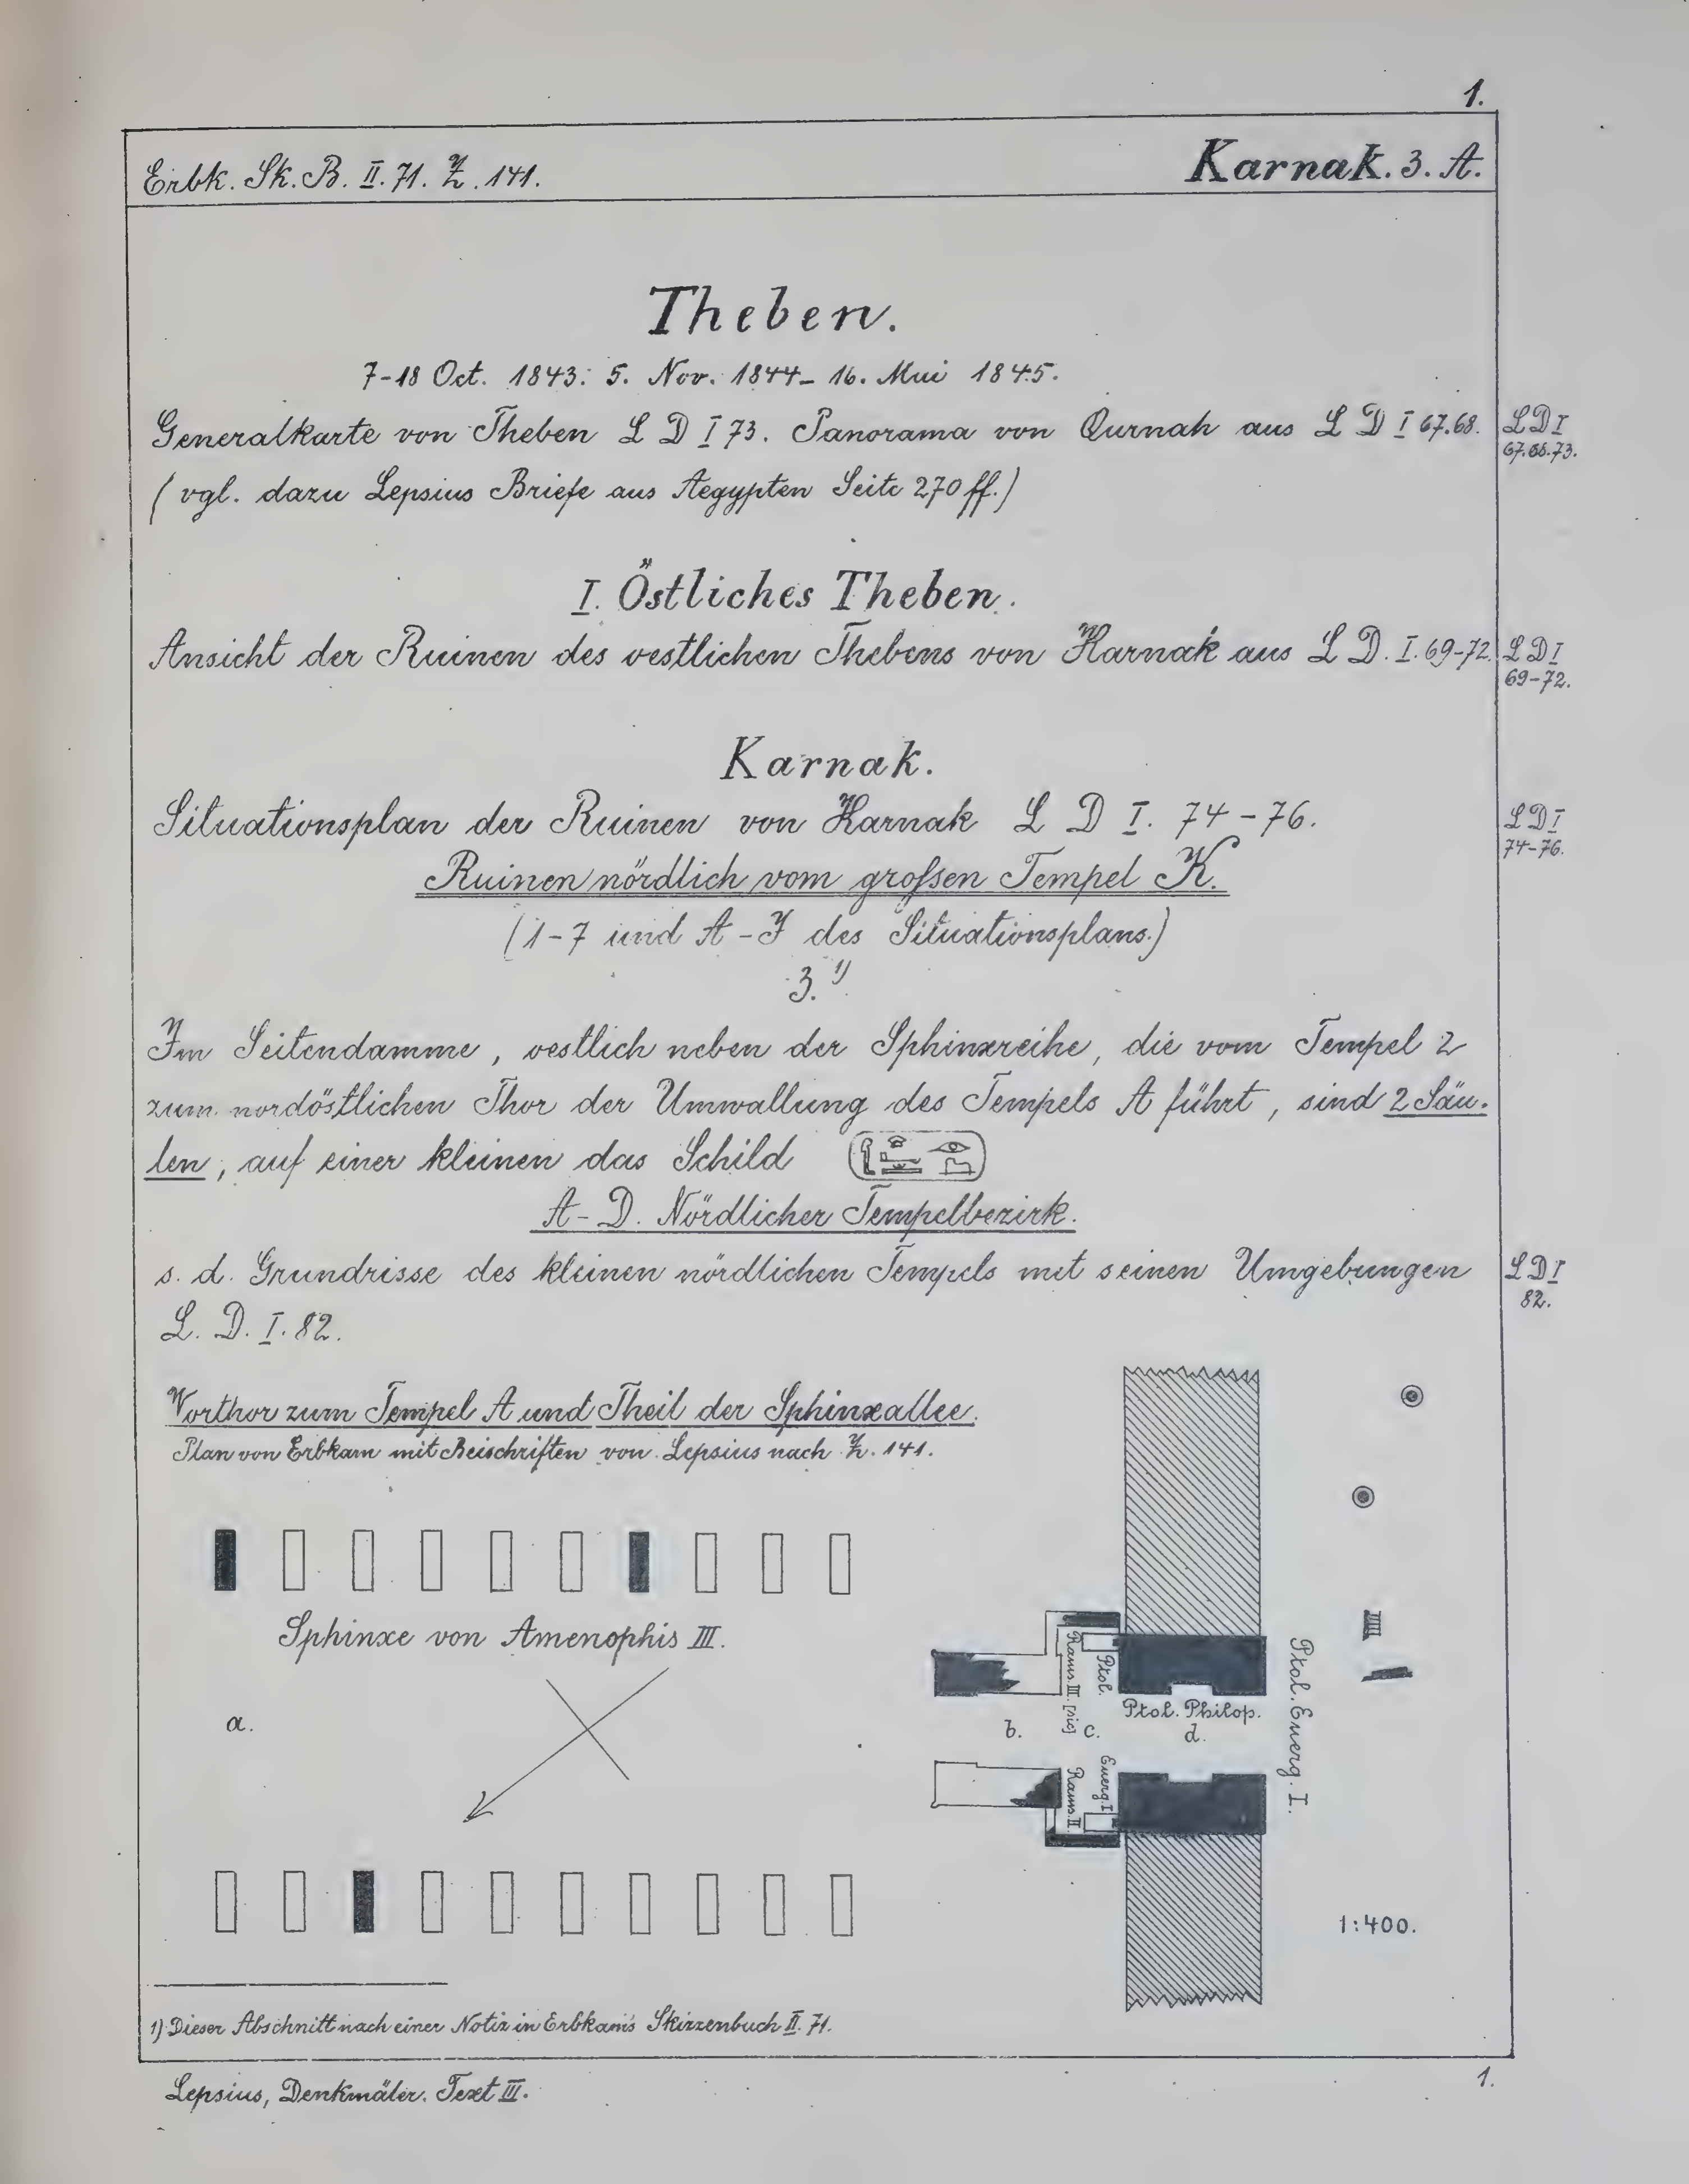 1.
Erbk. Sk. B. II. 71. Z. 141.
Karnak. 3. A.
Theben.
7-18 Oct. 1843: 5. Nov. 1844- 16. Mai 1845.
Generalkarte von Theben L D I 73. Panorama von Qurnah aus L D I 67.68.
L D I
67.68.73.
(vgl. dazu Lepsius Briefe aus Aegypten Seite 270 ff.)
I. Östliches Theben.
Ansicht der Ruinen des westlichen Thebens von Karnak aus L D. I. 69-72.
L D I
69-72.
Karnak.
Situationsplan der Ruinen von Karnak L D I. 74-76.
L D I
74-76.
Ruinen nördlich vom großen Tempel K.
(1-7 und A-J des Situationsplans.)
3. 1)
Im Seitendamme, westlich neben der Sphinxreihe, die vom Tempel 2
zum nordöstlichen Thor der Umwallung des Tempels A führt, sind 2 Säu-
len, auf einer kleinen das Schild
A-D. Nördlicher Tempelbezirk.
s. d. Grundrisse des kleinen nördlichen Tempels mit seinen Umgebungen
L D I
82.
L. D. I. 82.
Vorthor zum Tempel A und Theil der Sphinxallee.
Plan von Erbkam mit Beischriften von Lepsius nach Z. 141.
Sphinxe von Amenophis III.
a.
b.
Rams. III. [sic]
c.
Ptol.
Ptol. Philop.
d.
Ptol. Euerg. I.
Rams. II
Euerg. I
1:400.
1) Dieser Abschnitt nach einer Notiz in Erbkams Skizzenbuch II. 71.
Lepsius, Denkmäler. Text III.
1.